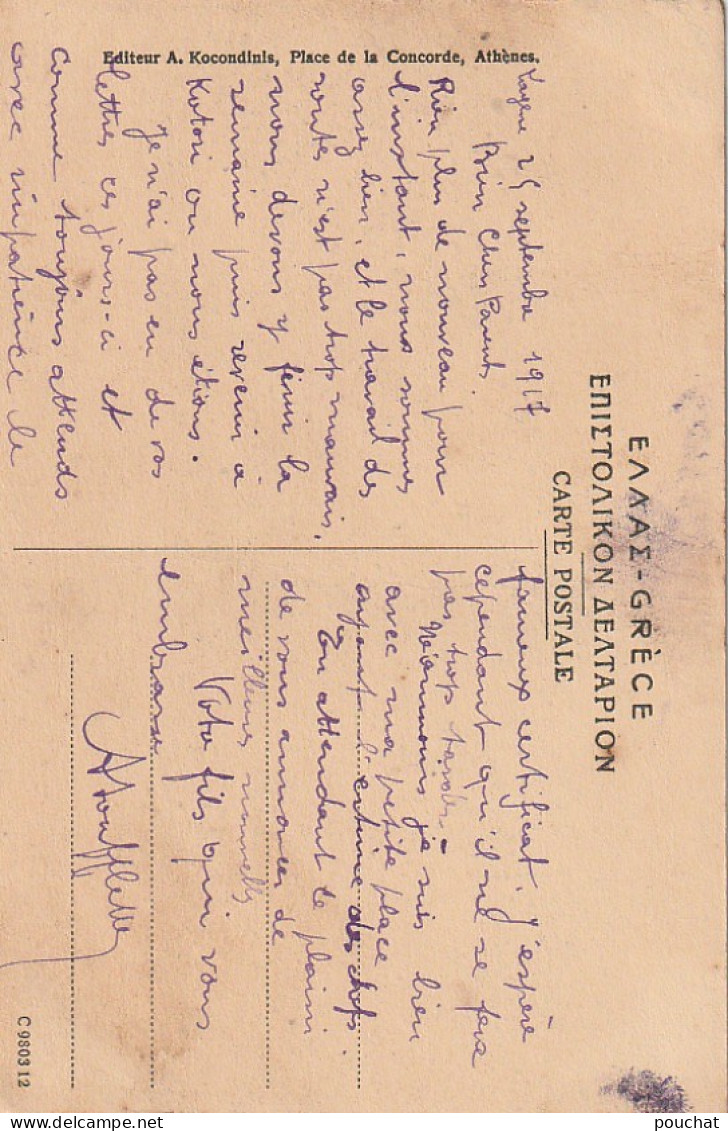 ΕΛΛΑΣ-GRÈCE
ΕΠΙΣΤΟΛΙΚΟΝ ΔΕΛΤΑΡΙΟΝ
CARTE POSTALE
Editeur A. Kocondinis, Place de la Concorde, Athènes.
25 septembre 1917
Bien Chers Parents
Rien plus de nouveau pour
l'instant, nous sommes
assez bien, et le travail des
routes n'est pas trop mauvais,
nous devons y finir la
semaine puis revenir à
Kotori ou nous étions.
Je n'ai pas eu de vos
lettres ces jours-ci et
comme toujours attends
avec impatience le
fameux certificat. J'espère
cependant qu'il ne se fera
pas trop tarder.
Néanmoins je suis bien
avec ma petite place
ayant l'estime des chefs.
En attendant le plaisir
de vous annoncer de
meilleures nouvelles
Votre fils qui vous
embrasse
C 980312
pouchat